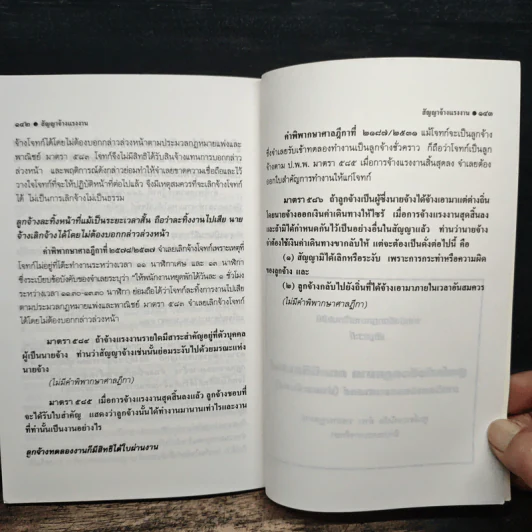 ๑๔๒ ● สัญญาจ้างแรงงาน
จ้างโจทก์ได้โดยไม่ต้องบอกกล่าวล่วงหน้าตามประมวลกฎหมายแพ่งและ
พาณิชย์ มาตรา ๕๘๓ โจทก์จึงไม่มีสิทธิได้รับสินจ้างแทนการบอกกล่าว
ล่วงหน้า และพฤติการณ์ดังกล่าวย่อมทำให้จำเลยขาดความเชื่อถือและไว้
วางใจโจทก์ที่จะให้ปฏิบัติหน้าที่ต่อไปแล้ว จึงมีเหตุสมควรที่จะเลิกจ้างโจทก์
ได้ ไม่เป็นการเลิกจ้างไม่เป็นธรรม
ลูกจ้างละทิ้งหน้าที่แม้เป็นระยะเวลาสั้น ถือว่าละทิ้งงานไปเสีย นาย
จ้างเลิกจ้างได้โดยไม่ต้องบอกกล่าวล่วงหน้า
คำพิพากษาศาลฎีกาที่ จำเลยเลิกจ้างโจทก์เพราะเหตุที่
โจทก์ไม่อยู่ที่โต๊ะทำงานระหว่างเวลา ๑๑ นาฬิกาเศษ และ ๑๓ นาฬิกา
ซึ่งระเบียบข้อบังคับของจำเลยระบุว่า "ให้พนักงานหยุดพักได้วันละ ๑ ชั่วโมง
ระหว่างเวลา ๑๑.๓๐-๑๓.๓๐ นาฬิกา ย่อมถือได้ว่าโจทก์ละทิ้งการงานไปเสีย
ตามประมวลกฎหมายแพ่งและพาณิชย์ มาตรา ๕๘๓ จำเลยเลิกจ้างโจทก์
ได้โดยไม่ต้องบอกกล่าวล่วงหน้า
มาตรา ๕๘๔ ถ้าจ้างแรงงานรายใดมีสาระสำคัญอยู่ที่ตัวบุคคล
ผู้เป็นนายจ้าง ท่านว่าสัญญาจ้างเช่นนั้นย่อมระงับไปด้วยมรณะแห่ง
นายจ้าง
(ไม่มีคำพิพากษาศาลฎีกา)
มาตรา ๕๘๕ เมื่อการจ้างแรงงานสุดสิ้นลงแล้ว ลูกจ้างชอบที่
จะได้รับใบสำคัญ แสดงว่าลูกจ้างนั้นได้ทำงานมานานเท่าไรและงาน
ที่ทำนั้นเป็นงานอย่างไร
ลูกจ้างทดลองงานก็มีสิทธิได้ใบผ่านงาน
สัญญาจ้างแรงงาน ● ๑๔๓
คำพิพากษาศาลฎีกาที่ ๒๑๘๗/๒๕๓๑ แม้โจทก์จะเป็นลูกจ้าง
ซึ่งจำเลยรับเข้าทดลองทำงานเป็นลูกจ้างชั่วคราว ก็ถือว่าโจทก์เป็นลูก
จ้างตาม ป.พ.พ. มาตรา ๕๘๕ เมื่อการจ้างแรงงานสิ้นสุดลง จำเลยต้อง
ออกใบสำคัญการทำงานให้แก่โจทก์
มาตรา ๕๘๖ ถ้าลูกจ้างเป็นผู้ซึ่งนายจ้างได้จ้างเอามาแต่ต่างถิ่น
โดยนายจ้างออกเงินค่าเดินทางให้ไซร้ เมื่อการจ้างแรงงานสุดสิ้นลง
และถ้ามิได้กำหนดกันไว้เป็นอย่างอื่นในสัญญาแล้ว ท่านว่านายจ้าง
จำต้องใช้เงินค่าเดินทางขากลับให้ แต่จะต้องเป็นดั่งต่อไปนี้ คือ
(๑) สัญญามิได้เลิกหรือระงับ เพราะการกระทำหรือความผิด
ของลูกจ้าง และ
(๒) ลูกจ้างกลับไปยังถิ่นที่ได้จ้างเอามาภายในเวลาอันสมควร
(ไม่มีคำพิพากษาศาลฎีกา)